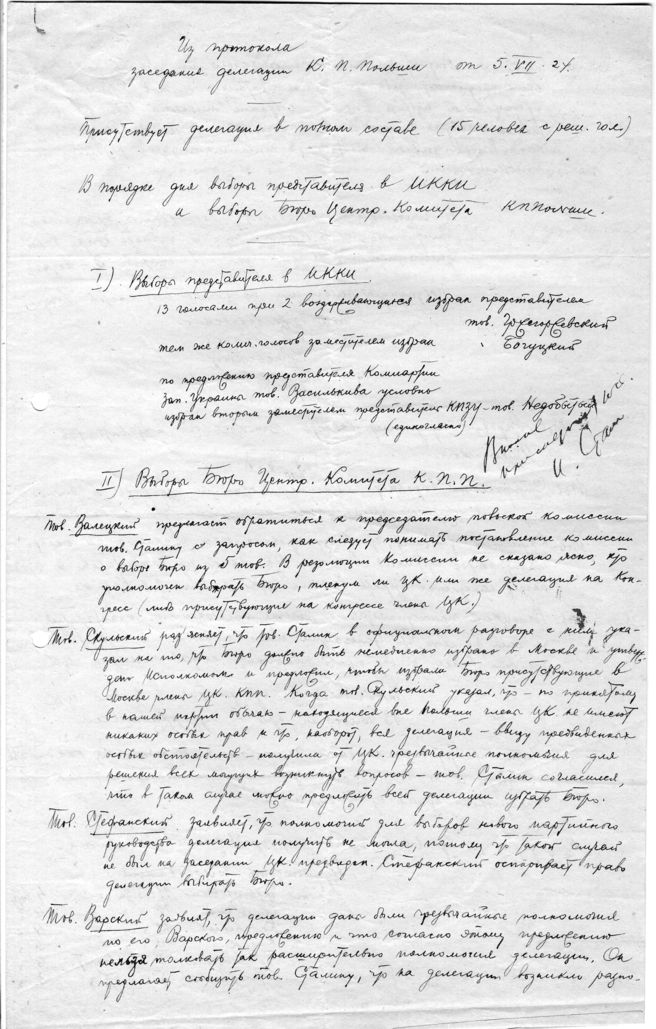 Из протокола
заседания делегации К. П. Польши от 5. VII. 24.
Присутствует делегация в полном составе (15 человек с реш. гол.)
В порядке дня выборы представителя в ИККИ
и выборы Бюро Центр. Комитета КППольши.
I) Выборы представителя в ИККИ
13 голосами при 2 воздерживающихся избран представителем
тов. Гржегоржевский
тем же колич. голосов заместителем избран " Богуцкий
по предложению представителя Компартии
Зап. Украины тов. Василькива условно
избран вторым заместителем представитель КПЗУ – тов. Недобытый
(единогласно)
И. Стал
II) Выборы Бюро Центр. Комитета К. П. П.
Тов. Валецкий предлагает обратиться к председателю польской комиссии
тов. Сталину с запросом, как следует понимать постановление комиссии
о выборе бюро из 5 тов. В резолюции Комиссии не сказано ясно, кто
уполномочен выбрать Бюро, пленум ли ЦК. или же делегация на Кон-
гресс (либо присутствующие на конгрессе члены ЦК.)
Тов. Скульский раз'ясняет, что тов. Сталин в официальном разговоре с ним ука-
зал на то, что Бюро должно быть немедленно избрано в Москве и утверж-
дено Исполкомом и предложил, чтобы избрали Бюро присутствующие в
Москве члены ЦК. КПП. Когда тов. Скульский указал, что – по принятому
в нашей партии обычаю – находящиеся вне Польши члены ЦК не имеют
никаких особых прав и что, наоборот, вся делегация – ввиду предвиденных
особых обстоятельств – получила от ЦК. чрезвычайные полномочия для
решения всех могущих возникнуть вопросов – тов. Сталин согласился,
что в таком случае можно предложить всей делегации избрать Бюро.
Тов. Стефанский заявляет, что полномочий для выборов нового партийного
руководства делегация получить не могла, потому что такой случай
не был на заседании ЦК предвиден. Стефанский оспаривает право
делегации выбирать Бюро.
Тов. Варский заявляет, что делегации даны были чрезвычайные полномочия
по его, Варского, предложению и что согласно этому предложению
нельзя толковать так расширительно полномочия делегации. Он
предлагает сообщить тов. Сталину, что на делегации возникло разно-